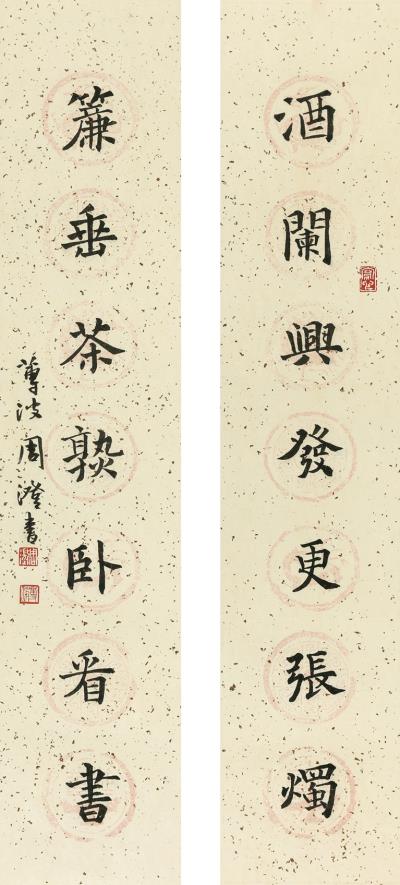 酒闌興發更張燭
簾垂茶熟臥看書
蓴波周澄書